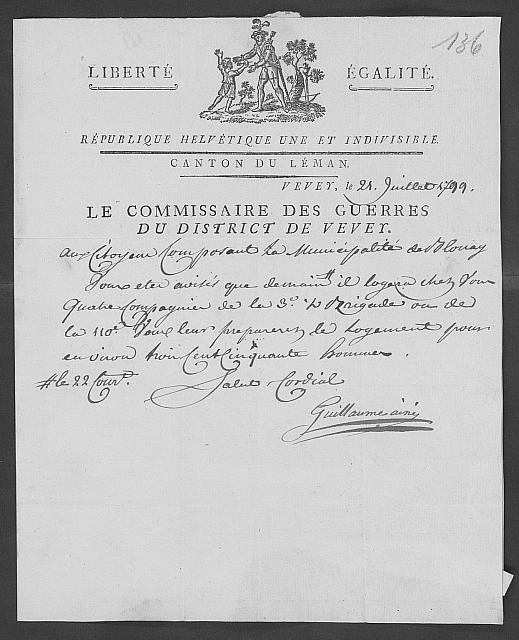 136
LIBERTÉ ÉGALITÉ.
RÉPUBLIQUE HELVÉTIQUE UNE ET INDIVISIBLE.
CANTON DU LÉMAN.
VEVEY, le 21 Juillet 1799.
LE COMMISSAIRE DES GUERRES
DU DISTRICT DE VEVEY.
aux Citoyens Composant La Municipalité de Blonay
Vous etes avisés que demain # il logera chez Vous
Quatre Compagnies de la 3e ½ Brigade ou de
la 110e Vous leur preparerez le Logement pour
environ trois Cent Cinquante hommes.
# le 22 Cour.t Salut Cordial
Guillaume ainé